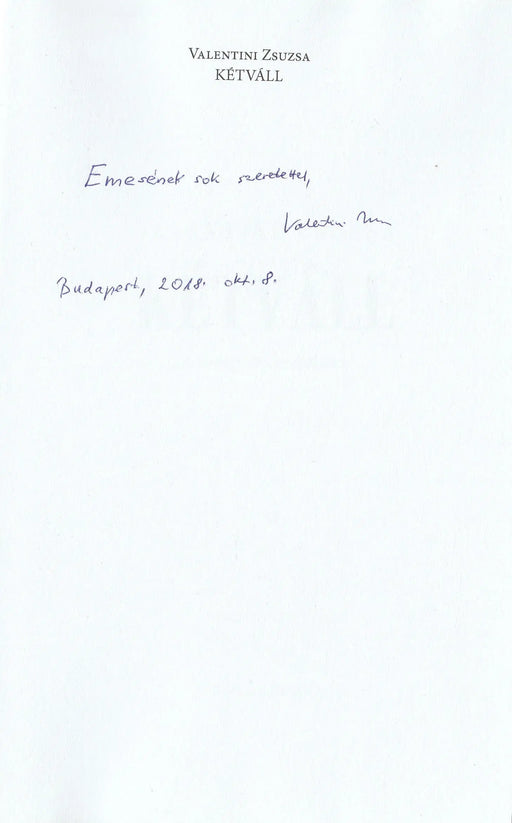 VALENTINI ZSUZSA
KÉTVÁLL
Emesének sok szeretettel,
Valentini
Budapest, 2018. okt. 8.